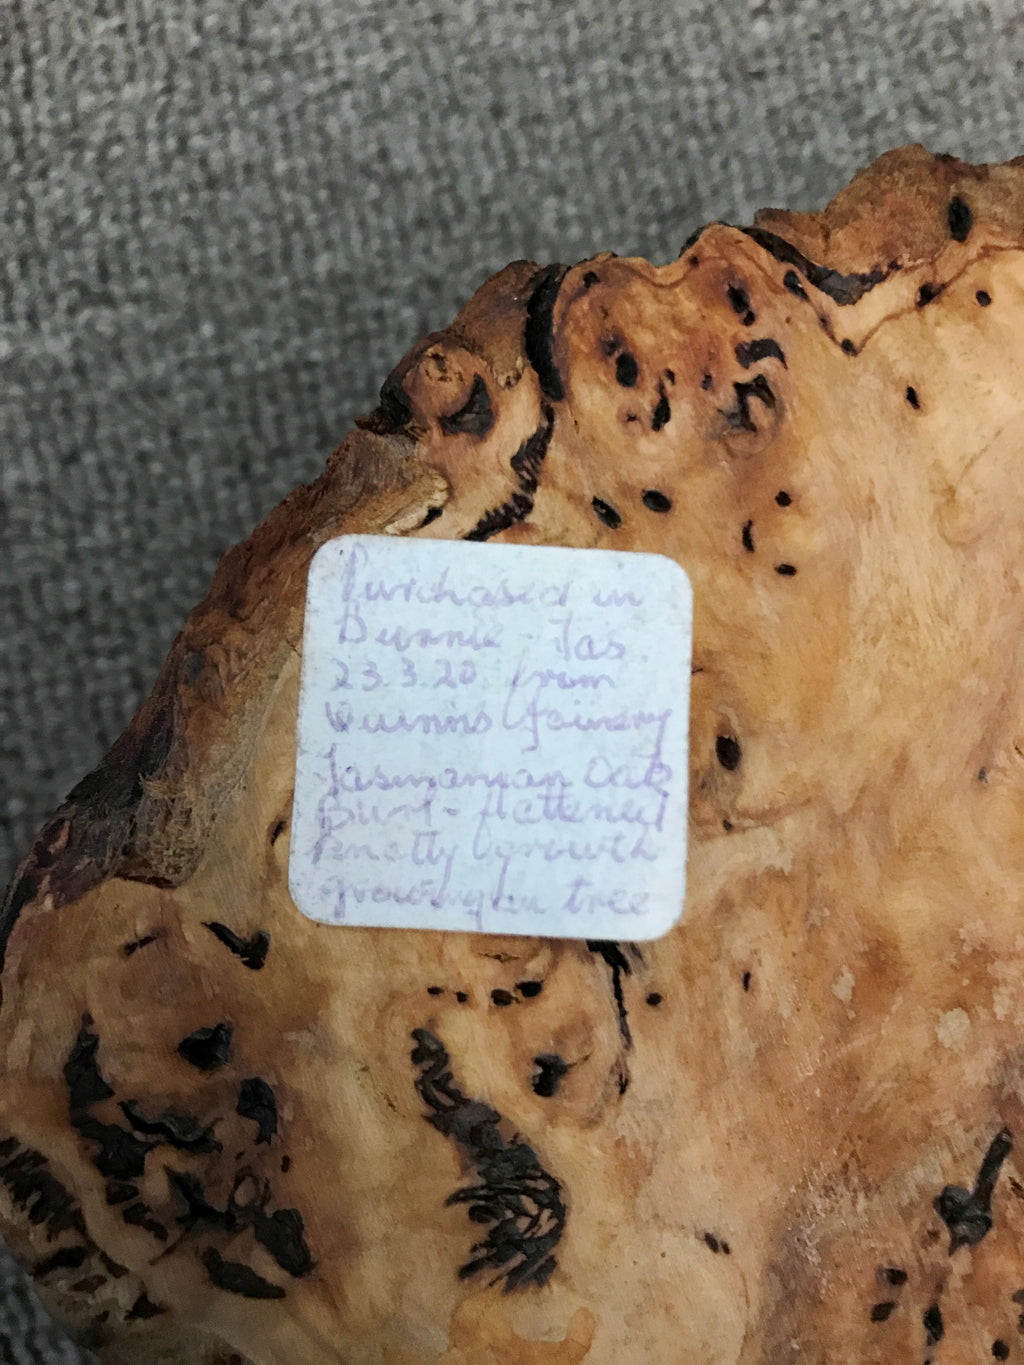 Purchased in
Burnie - Tas.
23.3.20. from
Quinns Joinery
Tasmanian Oak
Burl - flattened
knotty growth
growing on tree